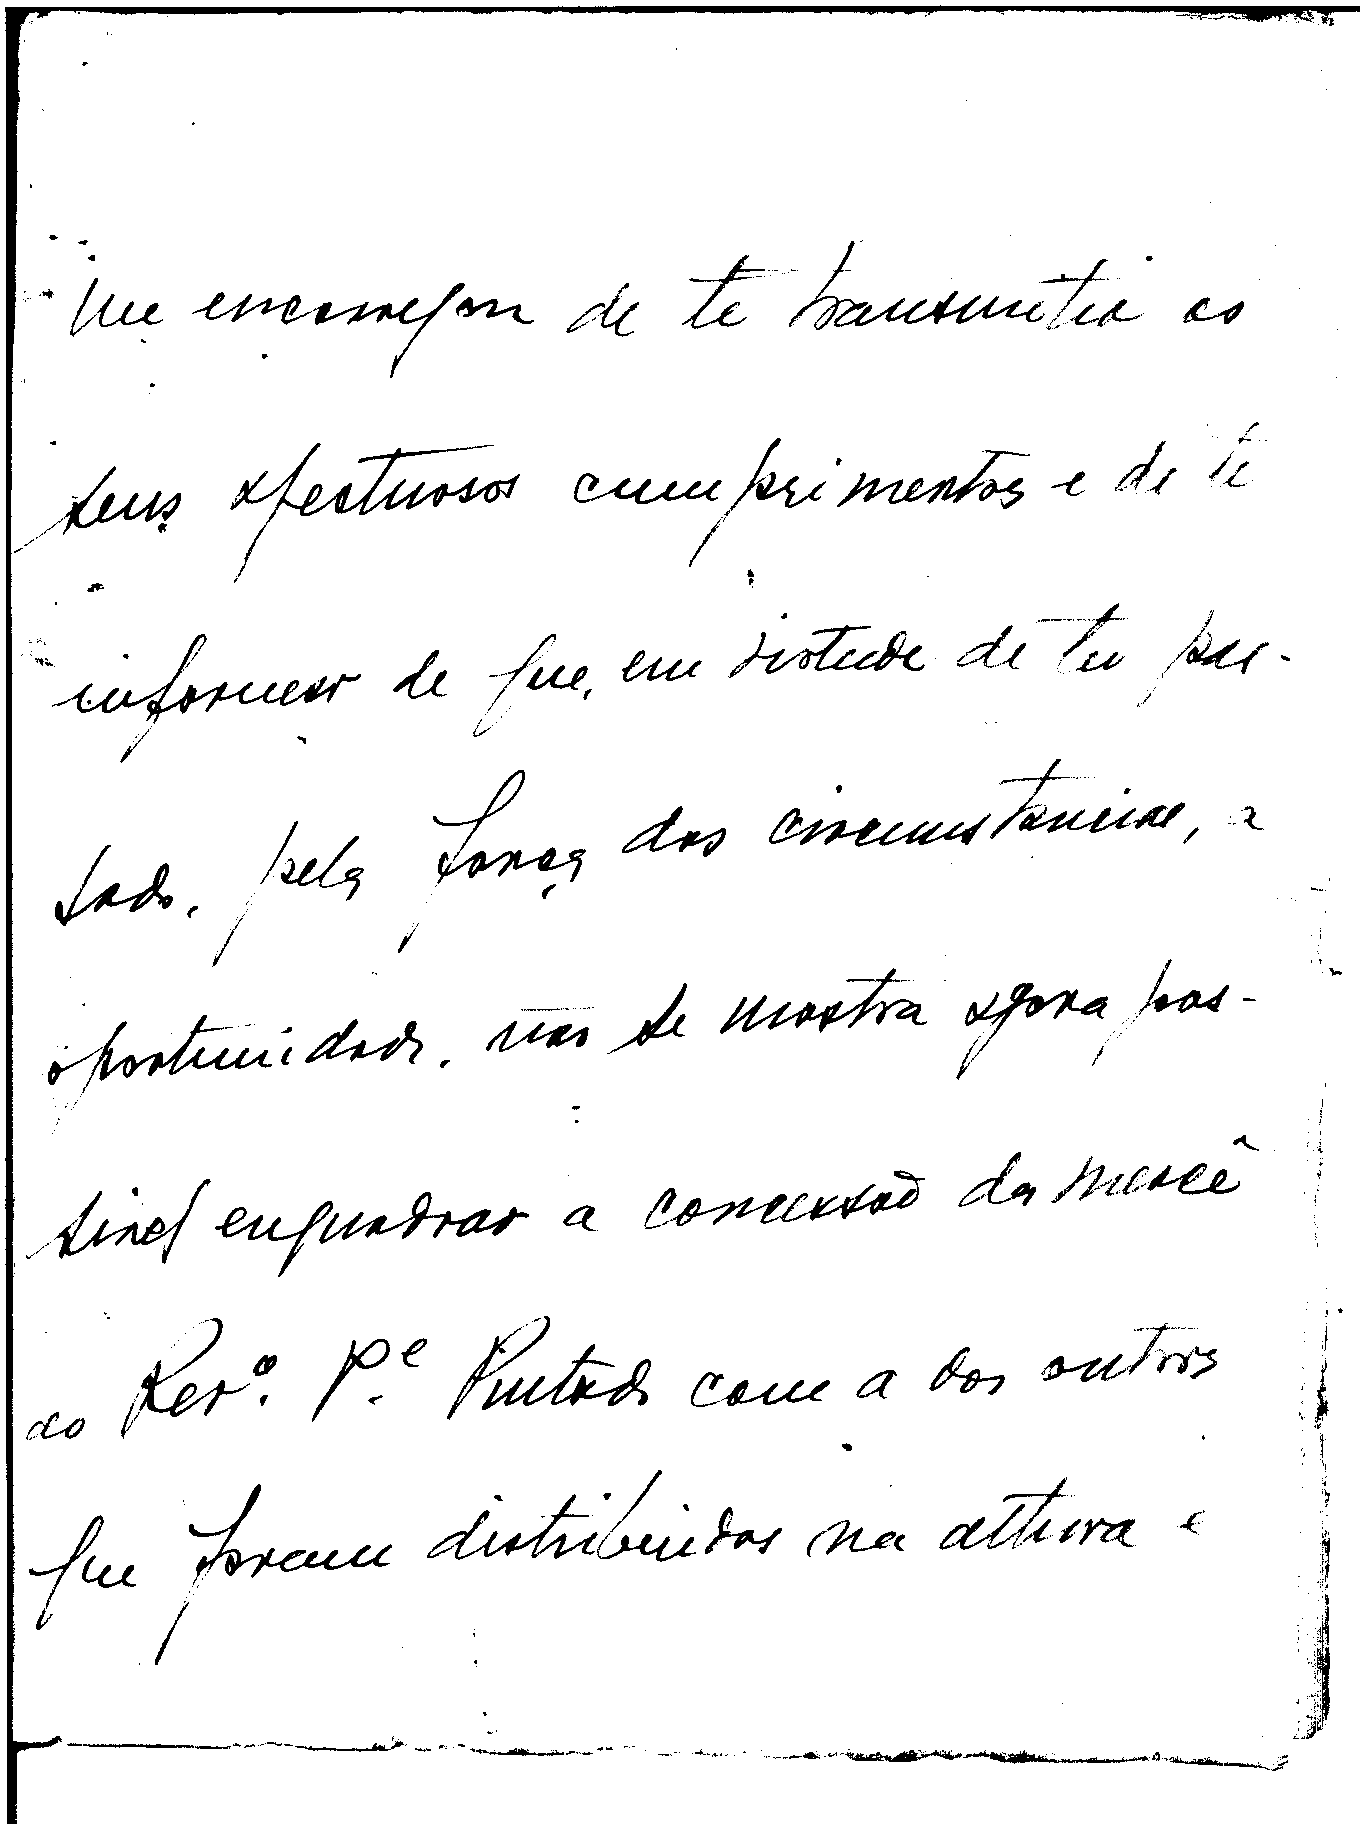 me encarregou de te transmitir os
seus afectuosos cumprimentos e de te
informar de que, em virtude de ter pas-
sado, pela força das circunstancias, a
oportunidade, não se mostra agora pos-
sivel enquadrar a concessão da mercê
ao Revº. P.e Pintado com a dos outros
que foram distribuidos na altura e